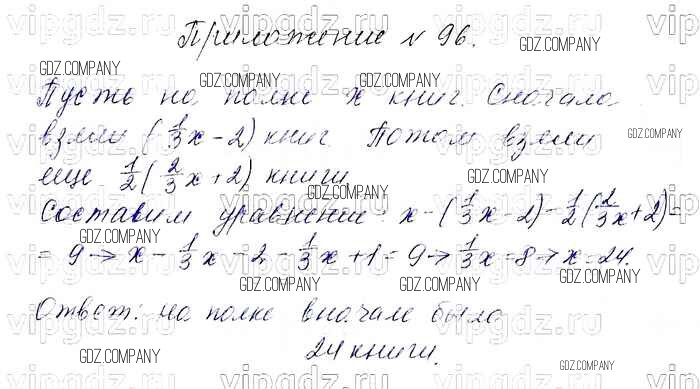 Приложение № 96.
Пусть на полке x книг. Сначала
взяли (1/3x - 2) книг. Потом взяли
еще 1/2(2/3x + 2) книги
Составим уравнение: x - (1/3x - 2) - 1/2(2/3x + 2) =
= 9 → x - 1/3x - 2 - 1/3x + 1 = 9 → 1/3x = 8 → x = 24.
Ответ: на полке вначале было
24 книги.
GDZ.COMPANY
vipgdz.ru